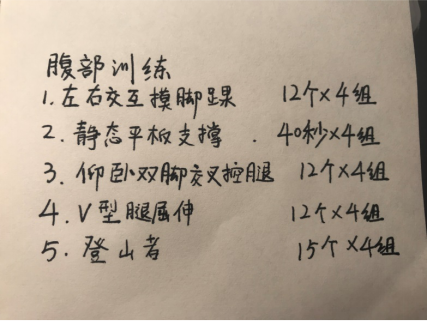 腹部训练
1.左右交互摸脚踝 12个×4组
2.静态平板支撑. 40秒×4组
3.仰卧双脚交叉控腿 12个×4组
4.V型腿屈伸 12个×4组
5.登山者 15个×4组